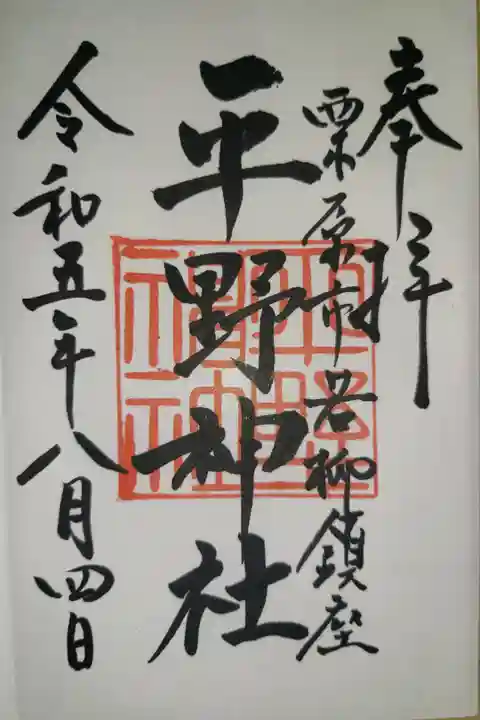 奉拝
栗原市若柳鎮座
平野神社
平野神社
令和五年八月四日